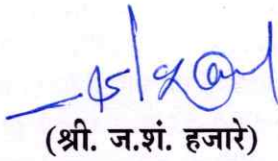 (श्री. ज.शं. हजारे)